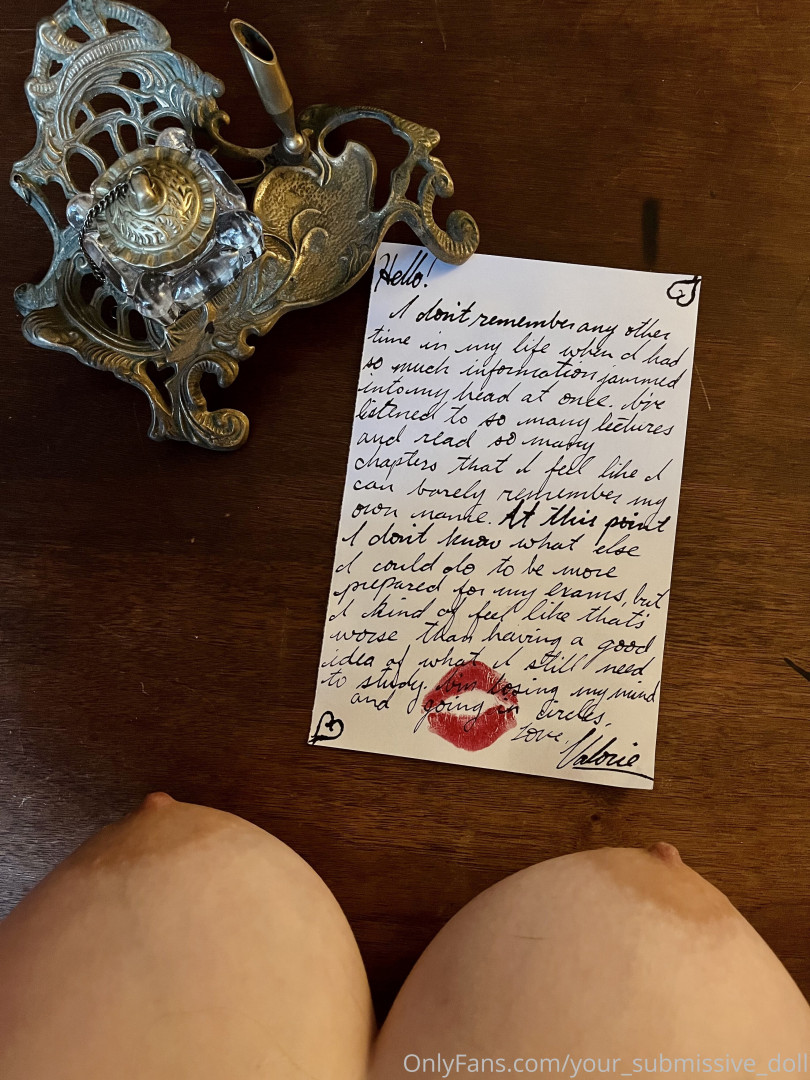 Hello!
I don't remember any other
time in my life when I had
so much information jammed
into my head at once. I've
listened to so many lectures
and read so many
chapters that I feel like I
can barely remember my
own name. At this point
I don't know what else
I could do to be more
prepared for my exams, but
I kind of feel like that's
worse than having a good
idea of what I still need
to study. I'm losing my mind
and going in circles.
Love,
Valorie
OnlyFans.com/your_submissive_doll